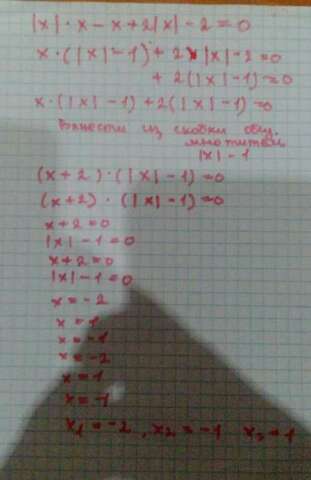 |x| · x - x + 2|x| - 2 = 0
x · (|x| - 1) + 2 x |x| - 2 = 0
+ 2(|x| - 1) = 0
x · (|x| - 1) + 2(|x| - 1) = 0
Вынесем из скобки общ.
множитель
|x| - 1
(x + 2) · (|x| - 1) = 0
(x + 2) · (|x| - 1) = 0
x + 2 = 0
|x| - 1 = 0
x + 2 = 0
|x| - 1 = 0
x = -2
x = 1
x = -1
x = -2
x = 1
x = -1
x₁ = -2 , x₂ = -1 x₃ = 1